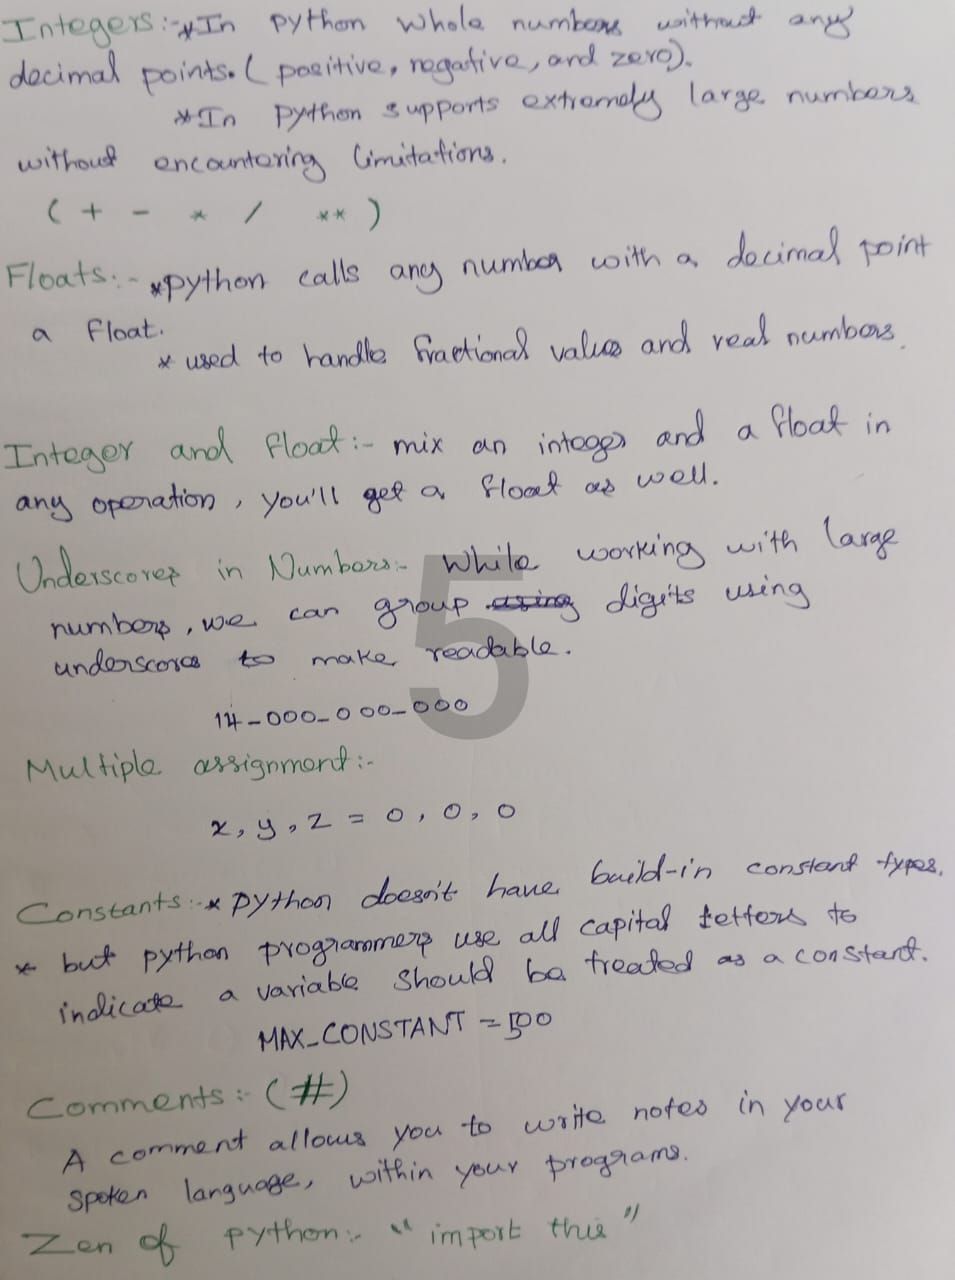 Integers:-*In python whole numbers without any
decimal points. ( positive, negative, and zero).
*In python supports extremely large numbers
without encountering limitations.
( + - * / ** )
Floats:- *python calls any number with a decimal point
a float.
* used to handle fractional values and real numbers.
Integer and float:- mix an integer and a float in
any operation, you'll get a float as well.
Underscores in Numbers:- While working with large
numbers, we can group using digits using
underscores to make readable.
14_000_000_000
Multiple assignment:-
x, y, z = 0, 0, 0
Constants:-* python doesn't have build-in constant types.
* but python programmers use all capital letters to
indicate a variable should be treated as a constant.
MAX_CONSTANT = 500
Comments:- (#)
A comment allows you to write notes in your
spoken language, within your programs.
Zen of python:- "import this"
5